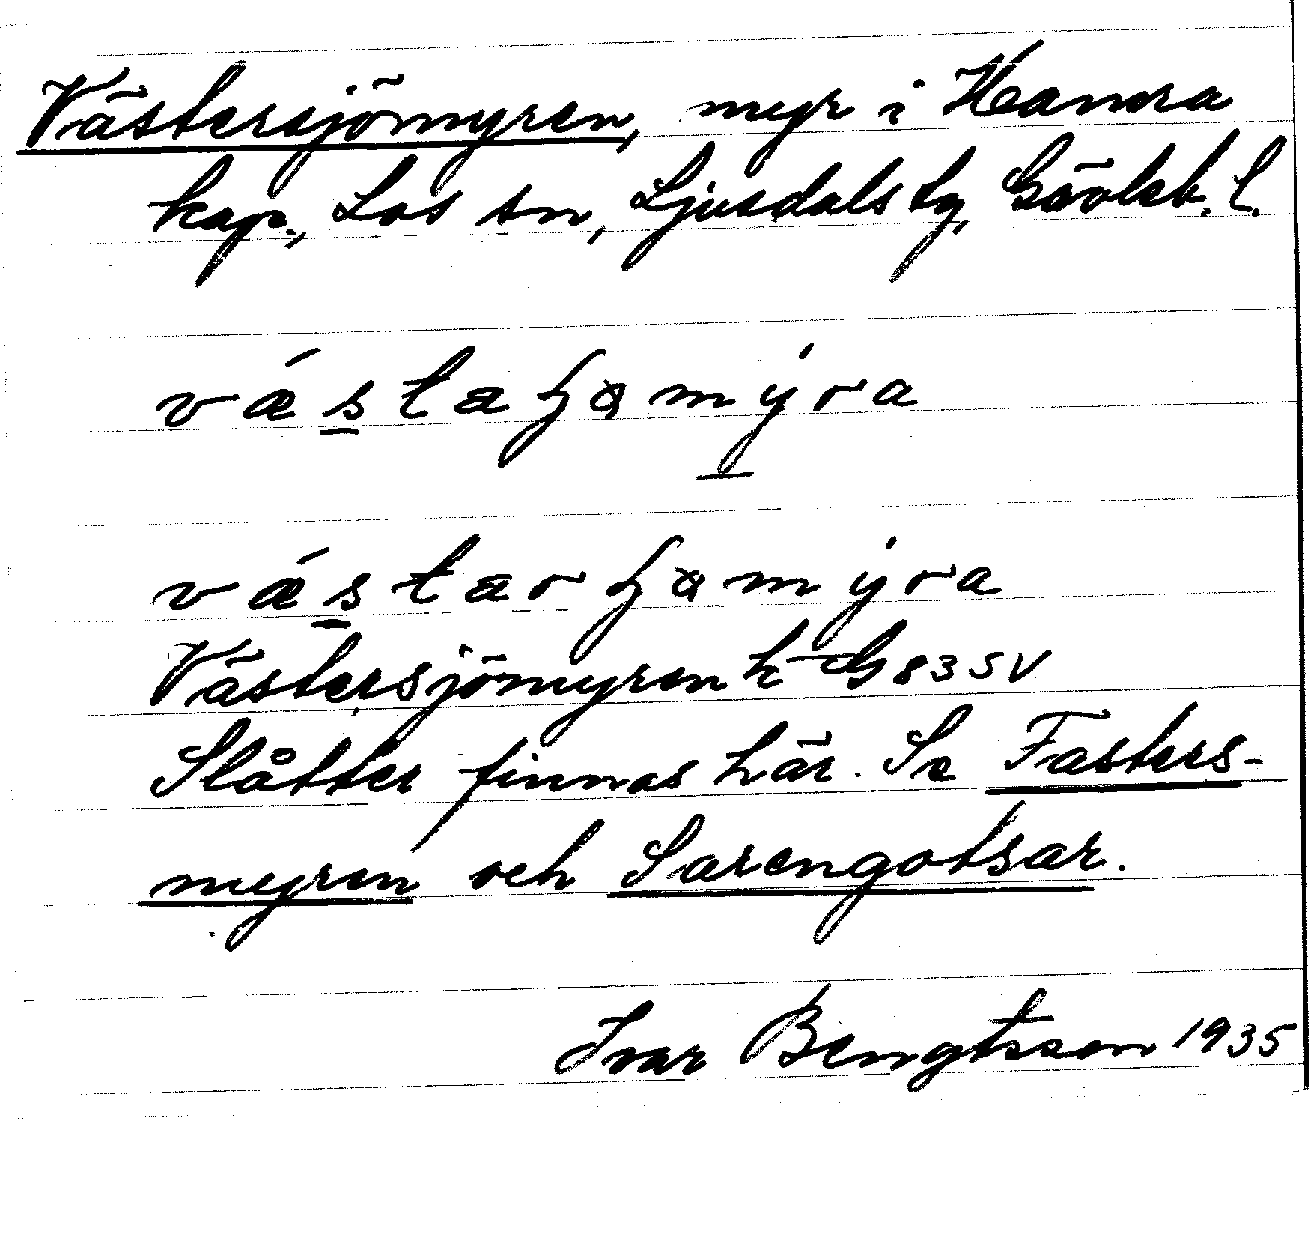 Västersjömyren, myr i Hamra
kap., Los sn, Ljusdals tg, Gävleb. l.
væ´stæʃømy´ra
væ´stærʃømy´ra
Västersjömyren k G 83 SV
Slåtter finnas här. Se Fasters-
myren och Sarengotsar.
Ivar Bengtsson 1935